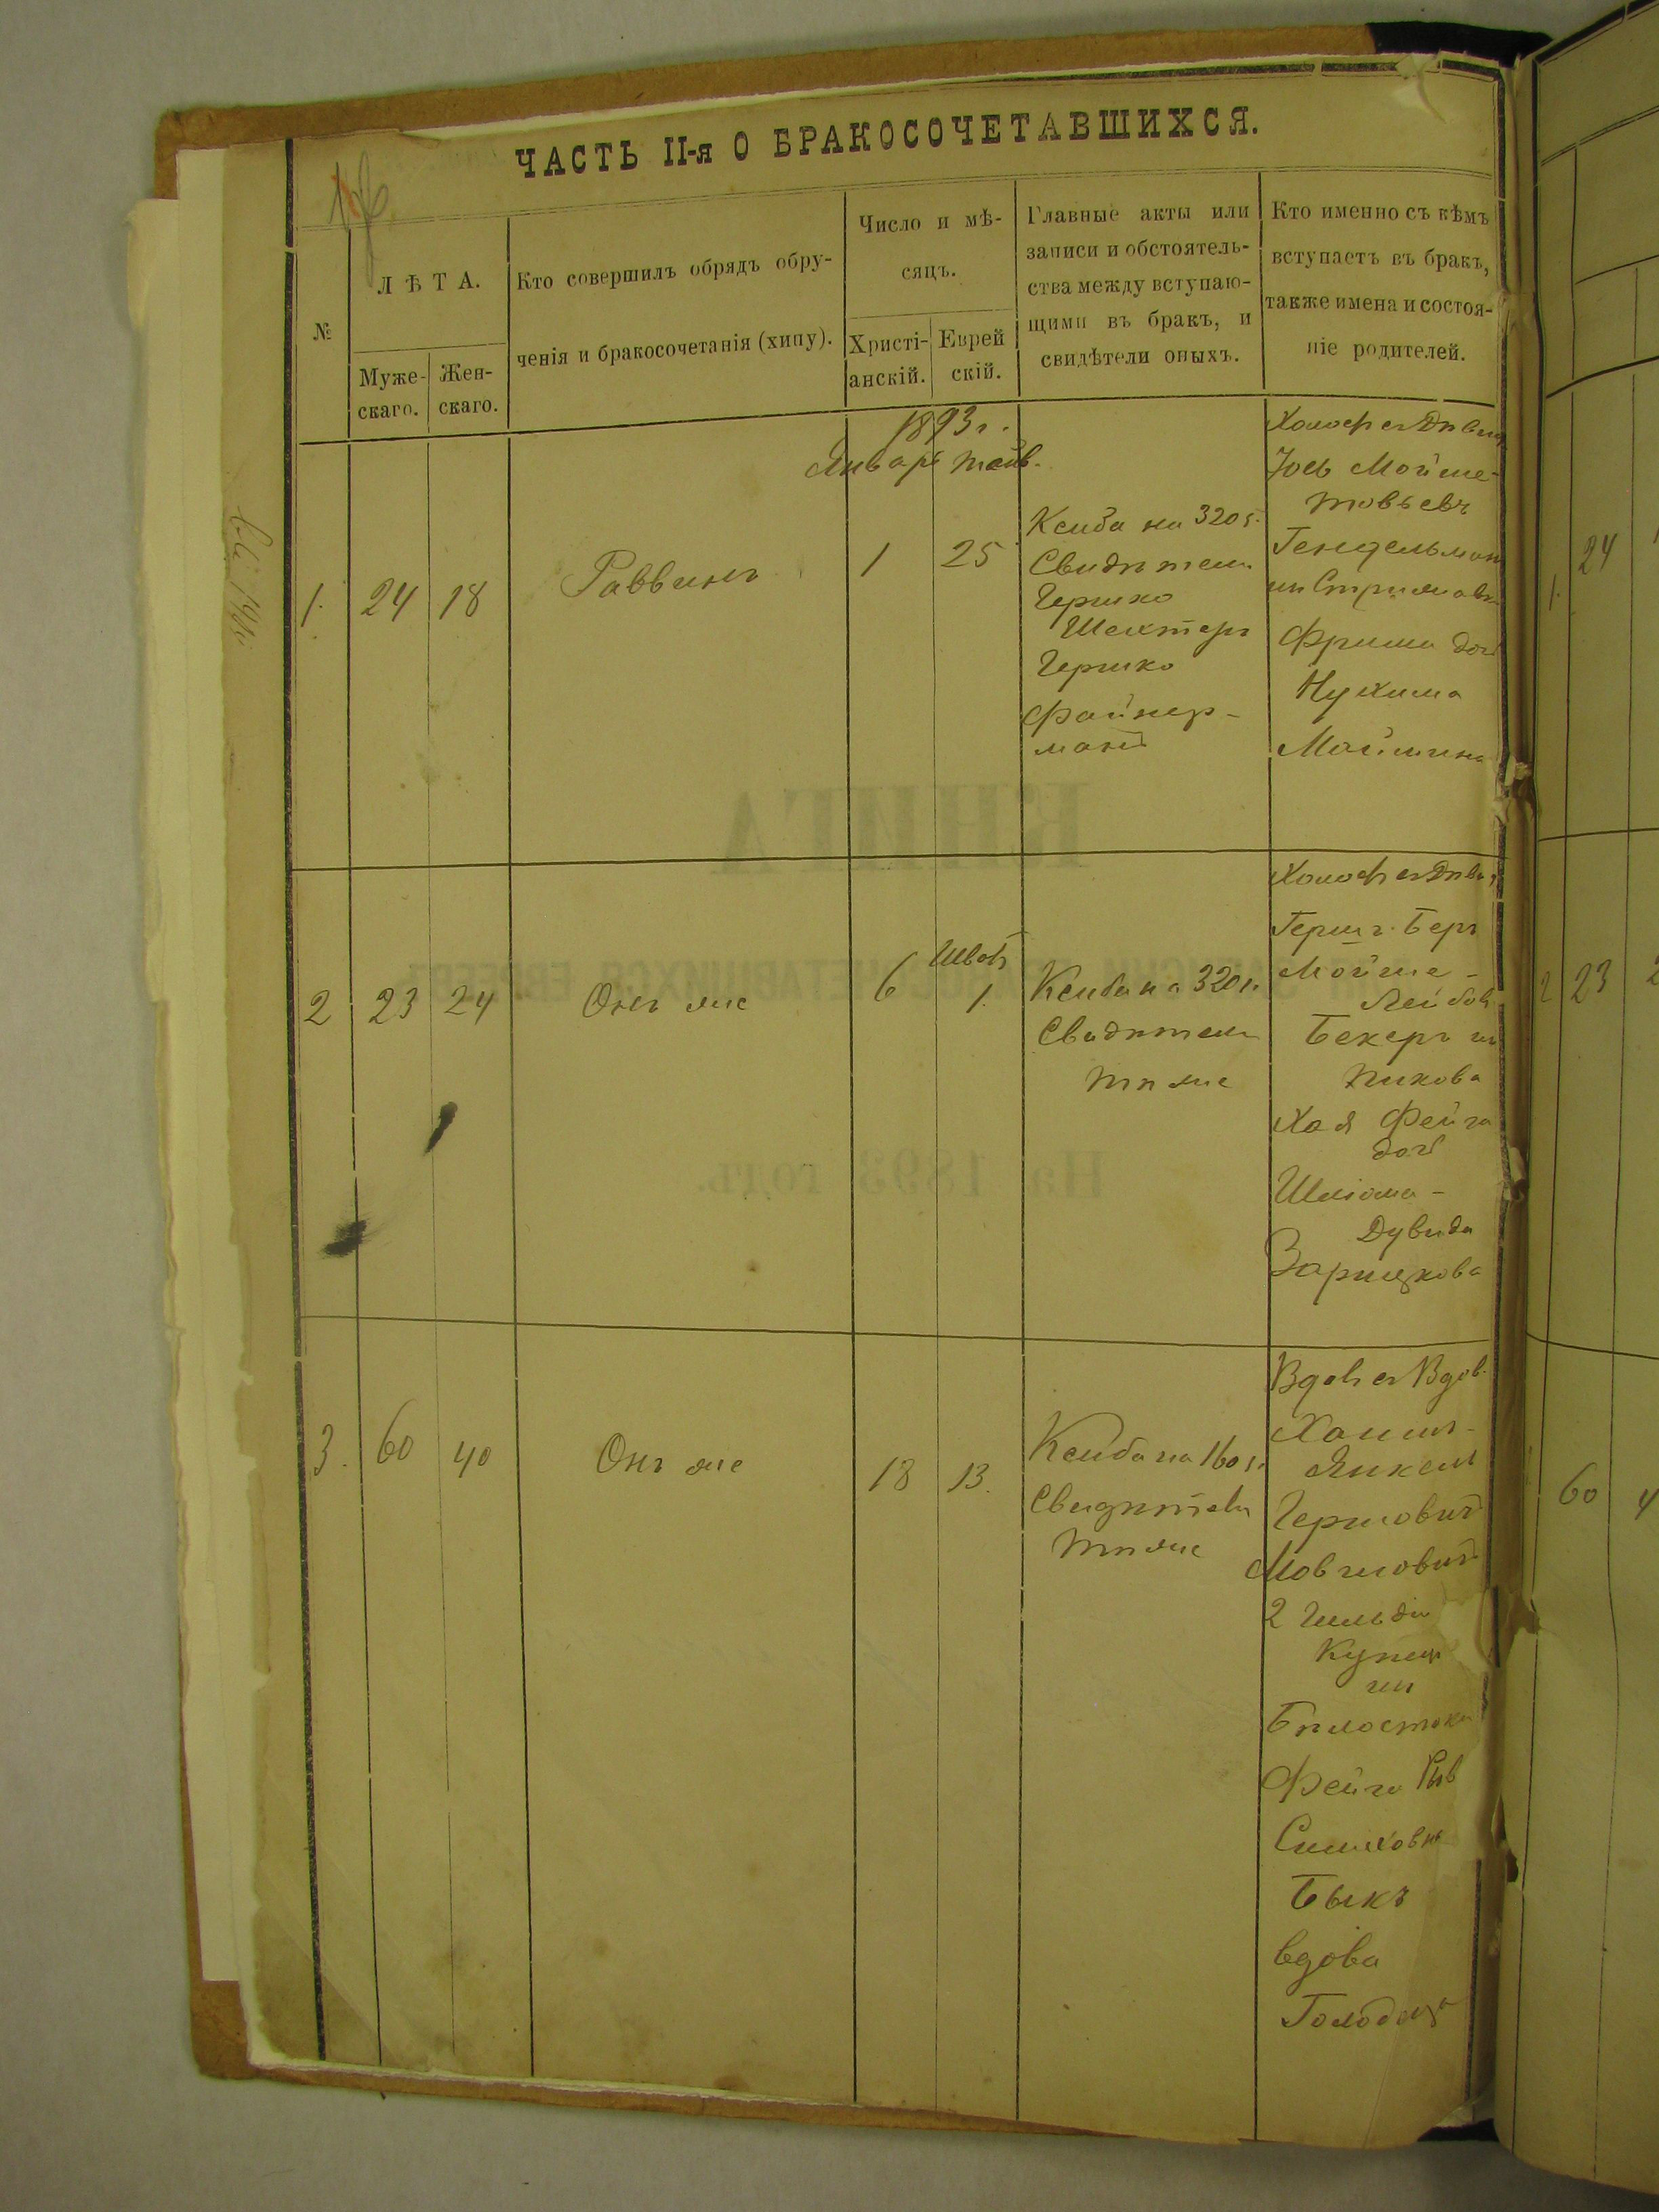 ЧАСТЬ II-я О БРАКОСОЧЕТАВШИХСЯ.
№
ЛѢТА.
Муже-
скаго.
Жен-
скаго.
Кто совершилъ обрядъ обру-
ченія и бракосочетанія (хипу).
Число и мѣ-
сяцъ.
Христі-
анскій.
Еврей
скій.
Главные акты или
записи и обстоятель-
ства между вступаю-
щими въ бракъ, и
свидѣтели оныхъ.
Кто именно съ кѣмъ
вступаетъ въ бракъ,
также имена и состоя-
ніе родителей.
1893 г.
Январь
1.
24
18
Раввинъ
1
25
на 320 г.
Свидѣтели
Гершко
Шехтеръ
Гершко
Файнер-
манъ
Холост съ Дѣвиц
Іось Мойше-
товьевъ
Гендельман
Фрима доч
Нухима
2
23
24
Онъ же
6
Шват
1.
на 320 г.
Свидѣтели
тѣ же
Холост съ Дѣви
Герш Беръ
Мойше-
Лейбов
Бекеръ из
Пикова
Хая Фейга
доч
Шліома-
Дувида
Зарицкова
3.
60
40
Онъ же
18
13.
на 160 г.
Свидѣтели
тѣ же
Вдов съ Вдов.
Хаимъ-
Янкель
Гершович
Мовшович
2 Гильди
Купец
из
Бѣлосток
Фейга Рыв
Симховн
Быкъ
вдова
24
1.
2
23
60